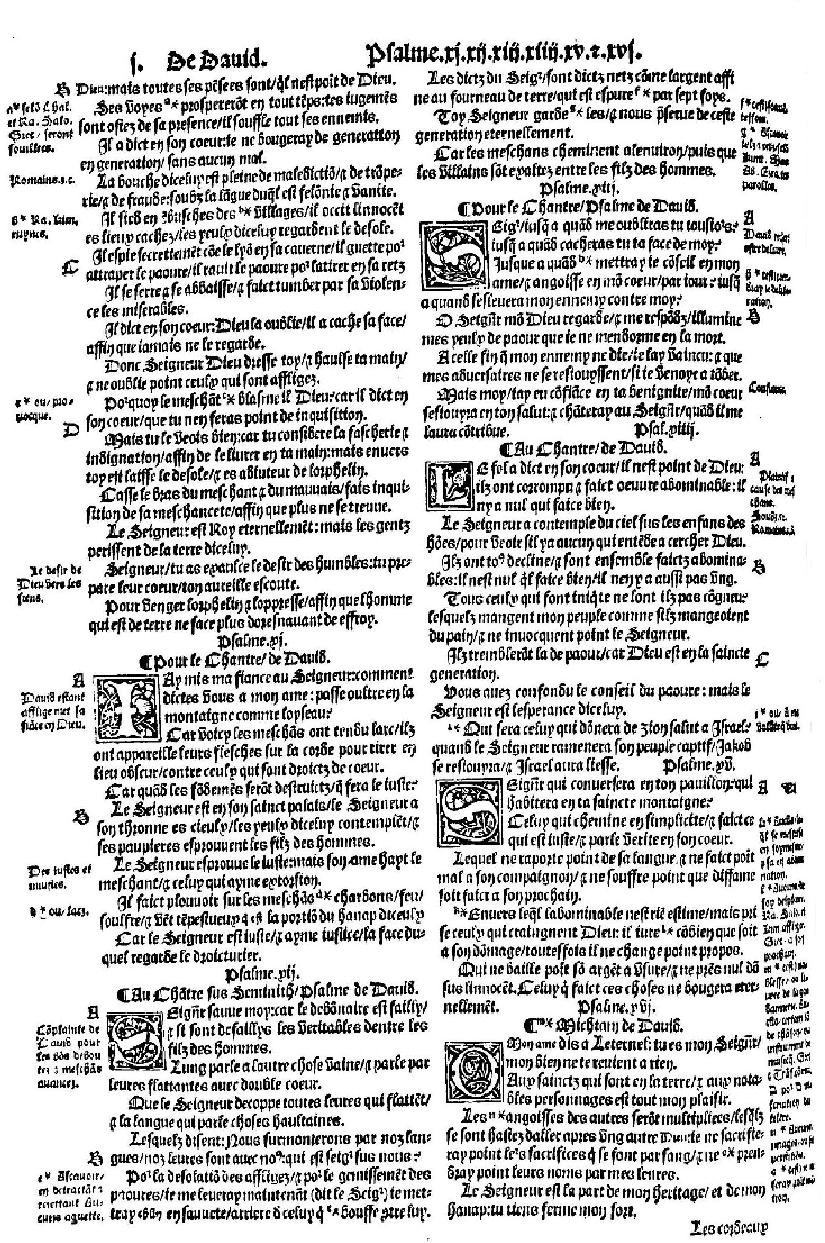 f. De Dauid. Psalme.xj.xij.xiij.xiiij.xv.⁊.xvj.
Dieu: mais toutes ses pẽsees sont/ q̃l nest poĩt de Dieu.
Ses voyes prospererõt en tout tẽps: tes iugemẽs
sont ostez de sa presence/ il souffle tout ses ennemis.
Il a dict en son coeur: ie ne bougeray de generation
en generation/ sans aucun mal.
La bouche diceluy est pleine de maledictiõ/ ⁊ de trõpe-
rie/ ⁊ de fraude: soubz la lãgue duq̃l est felõnie ⁊ vanite.
Il sied en ẽbusches des villages/ il occit linnocẽt
es lieux cachez/ les yeulx diceluy regardent le desole.
Il espie secretemẽt cõe le lyõ en sa cauerne/ il guette po²
attraper le paoure/ il rauit le paoure po² latirer en sa retz
Il se serre ⁊ se abbaisse/ ⁊ faict tumber par sa violen-
ce les miserables.
Il dict en son coeur: Dieu la oublie/ il a cache sa face/
affin que iamais ne le regarde.
Donc Seigneur Dieu dresse toy/ ⁊ haulse ta main/
⁊ ne oublie point ceulx qui sont affligez.
Po²quoy le meschãt blasme il Dieu: car il dict en
son coeur/ que tu nen feras point de inquisition.
Mais tu le veois bien: car tu considere la fascherie ⁊
indignation/ affin de le liurer en ta main: mais enuers
toy est laisse le desole/ ⁊ es adiuteur de lorphelin.
Casse le bras du meschant ⁊ du mauuais/ fais inqui-
sition de sa meschancete/ affin que plus ne se treuue.
Le Seigneur est Roy eternellemẽt: mais les gentz
perissent de la terre diceluy.
Seigneur/ tu as exaulce le desir des humbles: tu pre-
pare leur coeur/ ton aureille escoute.
Pour venger lorphelin ⁊ loppresse/ affin que lhomme
qui est de terre ne face plus doresnauant de effroy.
Psalme.xj.
¶Pour le Chantre/ de Dauid.
IAy mis ma fiance au Seigneur: comment
dictes vous a mon ame: passe oultre en la
montaigne comme loyseau:
Car voicy les meschãs ont tendu larc/ ilz
ont appareille leurs flesches sur la corde pour tirer en
lieu obscur/ contre ceulx qui sont droictz de coeur.
Car quãd les fõdemẽs serõt destruictz/ q̃ fera le iuste:
Le Seigneur est en son sainct palais/ le Seigneur a
son throsne es cieulx/ les yeulx diceluy contemplẽt/ ⁊
ses paupieres esprouuent les filz des hommes.
Le Seigneur esprouue le iuste: mais son ame hayt le
meschant/ ⁊ celuy qui ayme extorsion.
Il faict plouuoir sur les meschãs charbons/ feu/
soulfre/ ⁊ vẽt tẽpestueux: q̃ est la portiõ du hanap diceulx
Car le Seigneur est iuste/ ⁊ ayme iustice/ la face du-
quel regarde le droicturier.
Psalme.xij.
¶Au Chãtre sus Seminith/ Psalme de Dauid.
SEigñr sauue moy: car le debõnaire est failly/
⁊ il sont defaillys les veritables dentre les
filz des hommes.
Lung parle a lautre chose vaine/ ⁊ parle par
leures flattantes auec double coeur.
Que le Seigneur decoppe toutes leures qui flattẽt/
⁊ la langue qui parle choses haultaines.
Lesquelz disent: Nous surmonterons par noz lan-
gues/ noz leures sont auec no²: qui est seig² sus nous:
Po² la desolatiõ des affligez/ ⁊ po² le gemissemẽt des
poures/ ie me leueray maintenãt (dit le Seig²) ie met-
tray en sauuete/ arriere d celuy q̃ bouffe ẽtre lux.
a selõ Chal.
et Ra. Salo.
souillees.
Romains.3.c.
b Ra. Kim.
c ou/ pro-
uocque.
Le desir de
Dieu vers les
siens.
Dauid estant
afflige met sa
fiãce en Dieu.
Des iustes et
iniustes.
Cõplainte de
Dauid pour
les bõs debou-
tez ⁊ meschãs
auancez.
Les dictz du Seig²/ sont dictz netz cõme largent affi
ne au fourneau de terre/ qui est espure par sept foys.
Toy Seigneur garde les/ ⁊ nous p̃serue de ceste
generation eternellement.
Car les meschans cheminent alenuiron/ puis que
les villains sõt exaltez entre les filz des hommes.
Psalme.xiij.
¶Pour le Chantre/ Psalme de Dauid.
SEig²/ iusq̃ a quãd me oubliras tu tousio²s:
iusq̃ a quãd cacheras tu ta face de moy:
Jusque a quãd mettray ie cõseil en mon
ame/ ⁊ angoisse en mõ coeur/ par iour: iusq̃
a quand se leuera mon ennemy contre moy:
O Seigñr mõ Dieu regarde/ ⁊ me respõdz/ illumine
mes yeulx de paour que ie ne mendorme en la mort.
A celle fin q̃ mon ennemy ne die/ ie lay vaincu: ⁊ que
mes aduersaires ne se resiouyssent/ si ie venoye a tõber.
Mais moy/ iay eu cõfiãce en ta benignite/ mõ coeur
sesiouyra en ton salut: ⁊ chãteray au Seigñr/ quãd il me
laura cõtribue. Psal.xiiij.
¶Au Chantre/ de Dauid.
LE fol a dict en son coeur/ il nest point de Dieu:
ilz ont corrompu ⁊ faict oeuure abominable: il
ny a nul qui face bien.
Le Seigneur a contemple du ciel sus les enfans des
hões/ pour veoir sil ya aucun qui entẽde a cercher Dieu.
Ilz ont to² decline/ ⁊ sont ensemble faictz abomina-
bles: il nest nul q̃l face bien/ il nen y a aussi pas vng.
Tous ceulx qui font iniq̃te ne lont ilz pas cõgneu:
lesquelz mangent mon peuple comme silz mangeoient
du pain/ ⁊ ne inuocquent point le Seigneur.
Ilz tremblerõt la de paour/ car Dieu est en la saincte
generation.
Vous auez confondu le conseil du paoure: mais le
Seigneur est lesperance diceluy.
Qui sera celuy qui dõnera de Zion salut a Israel:
quand le Seigneur ramenera son peuple captif/ Jakob
se resiouyra/ ⁊ Israel aura liesse. Psalme.xv.
SEigñr qui conuersera en ton pauillon: qui
habitera en ta saincte montaigne:
Celuy qui chemine en simplicite/ ⁊ faict ce
qui est iuste/ ⁊ parle verite en son coeur.
Lequel ne raporte point de sa langue/ ⁊ ne faict poĩt
mal a son compaignon/ ⁊ ne souffre point que diffame
soit faict a son prochain.
Enuers leq̃l labominable nest riẽ estime/ mais pri
se ceulx qui craingnent Dieu: il iure cõbien que soit
a son dõmage/ toutesfois il ne change point propos.
Qui ne baille poĩt sõ argẽt a vsure/ ⁊ ne prẽs nul dõ
sus linnocẽt. Celuy q̃ faict ces choses ne bougera eter-
nellemẽt. Psalme.xvj.
¶Michtam de Dauid.
Mon ame dis a Leternel: tu es mon Seigñr/
mon bien ne te reuient a rien.
Aux sainctz qui sont en la terre/ ⁊ aux nota-
bles personnages est tout mon plaisir.
Les angoisses des autres serõt multipliees/ lesq̃lz
se sont hastez daller apres vng autre Dieu: ie ne sacrifie-
ray point les sacrifices q̃ se font par sang/ ⁊ ne pren-
dray point leurs noms par mes leures.
Le Seigneur est la part de mon heritage/ et de mon
hanap: tu tiens ferme mon sort.
Les cordeaux